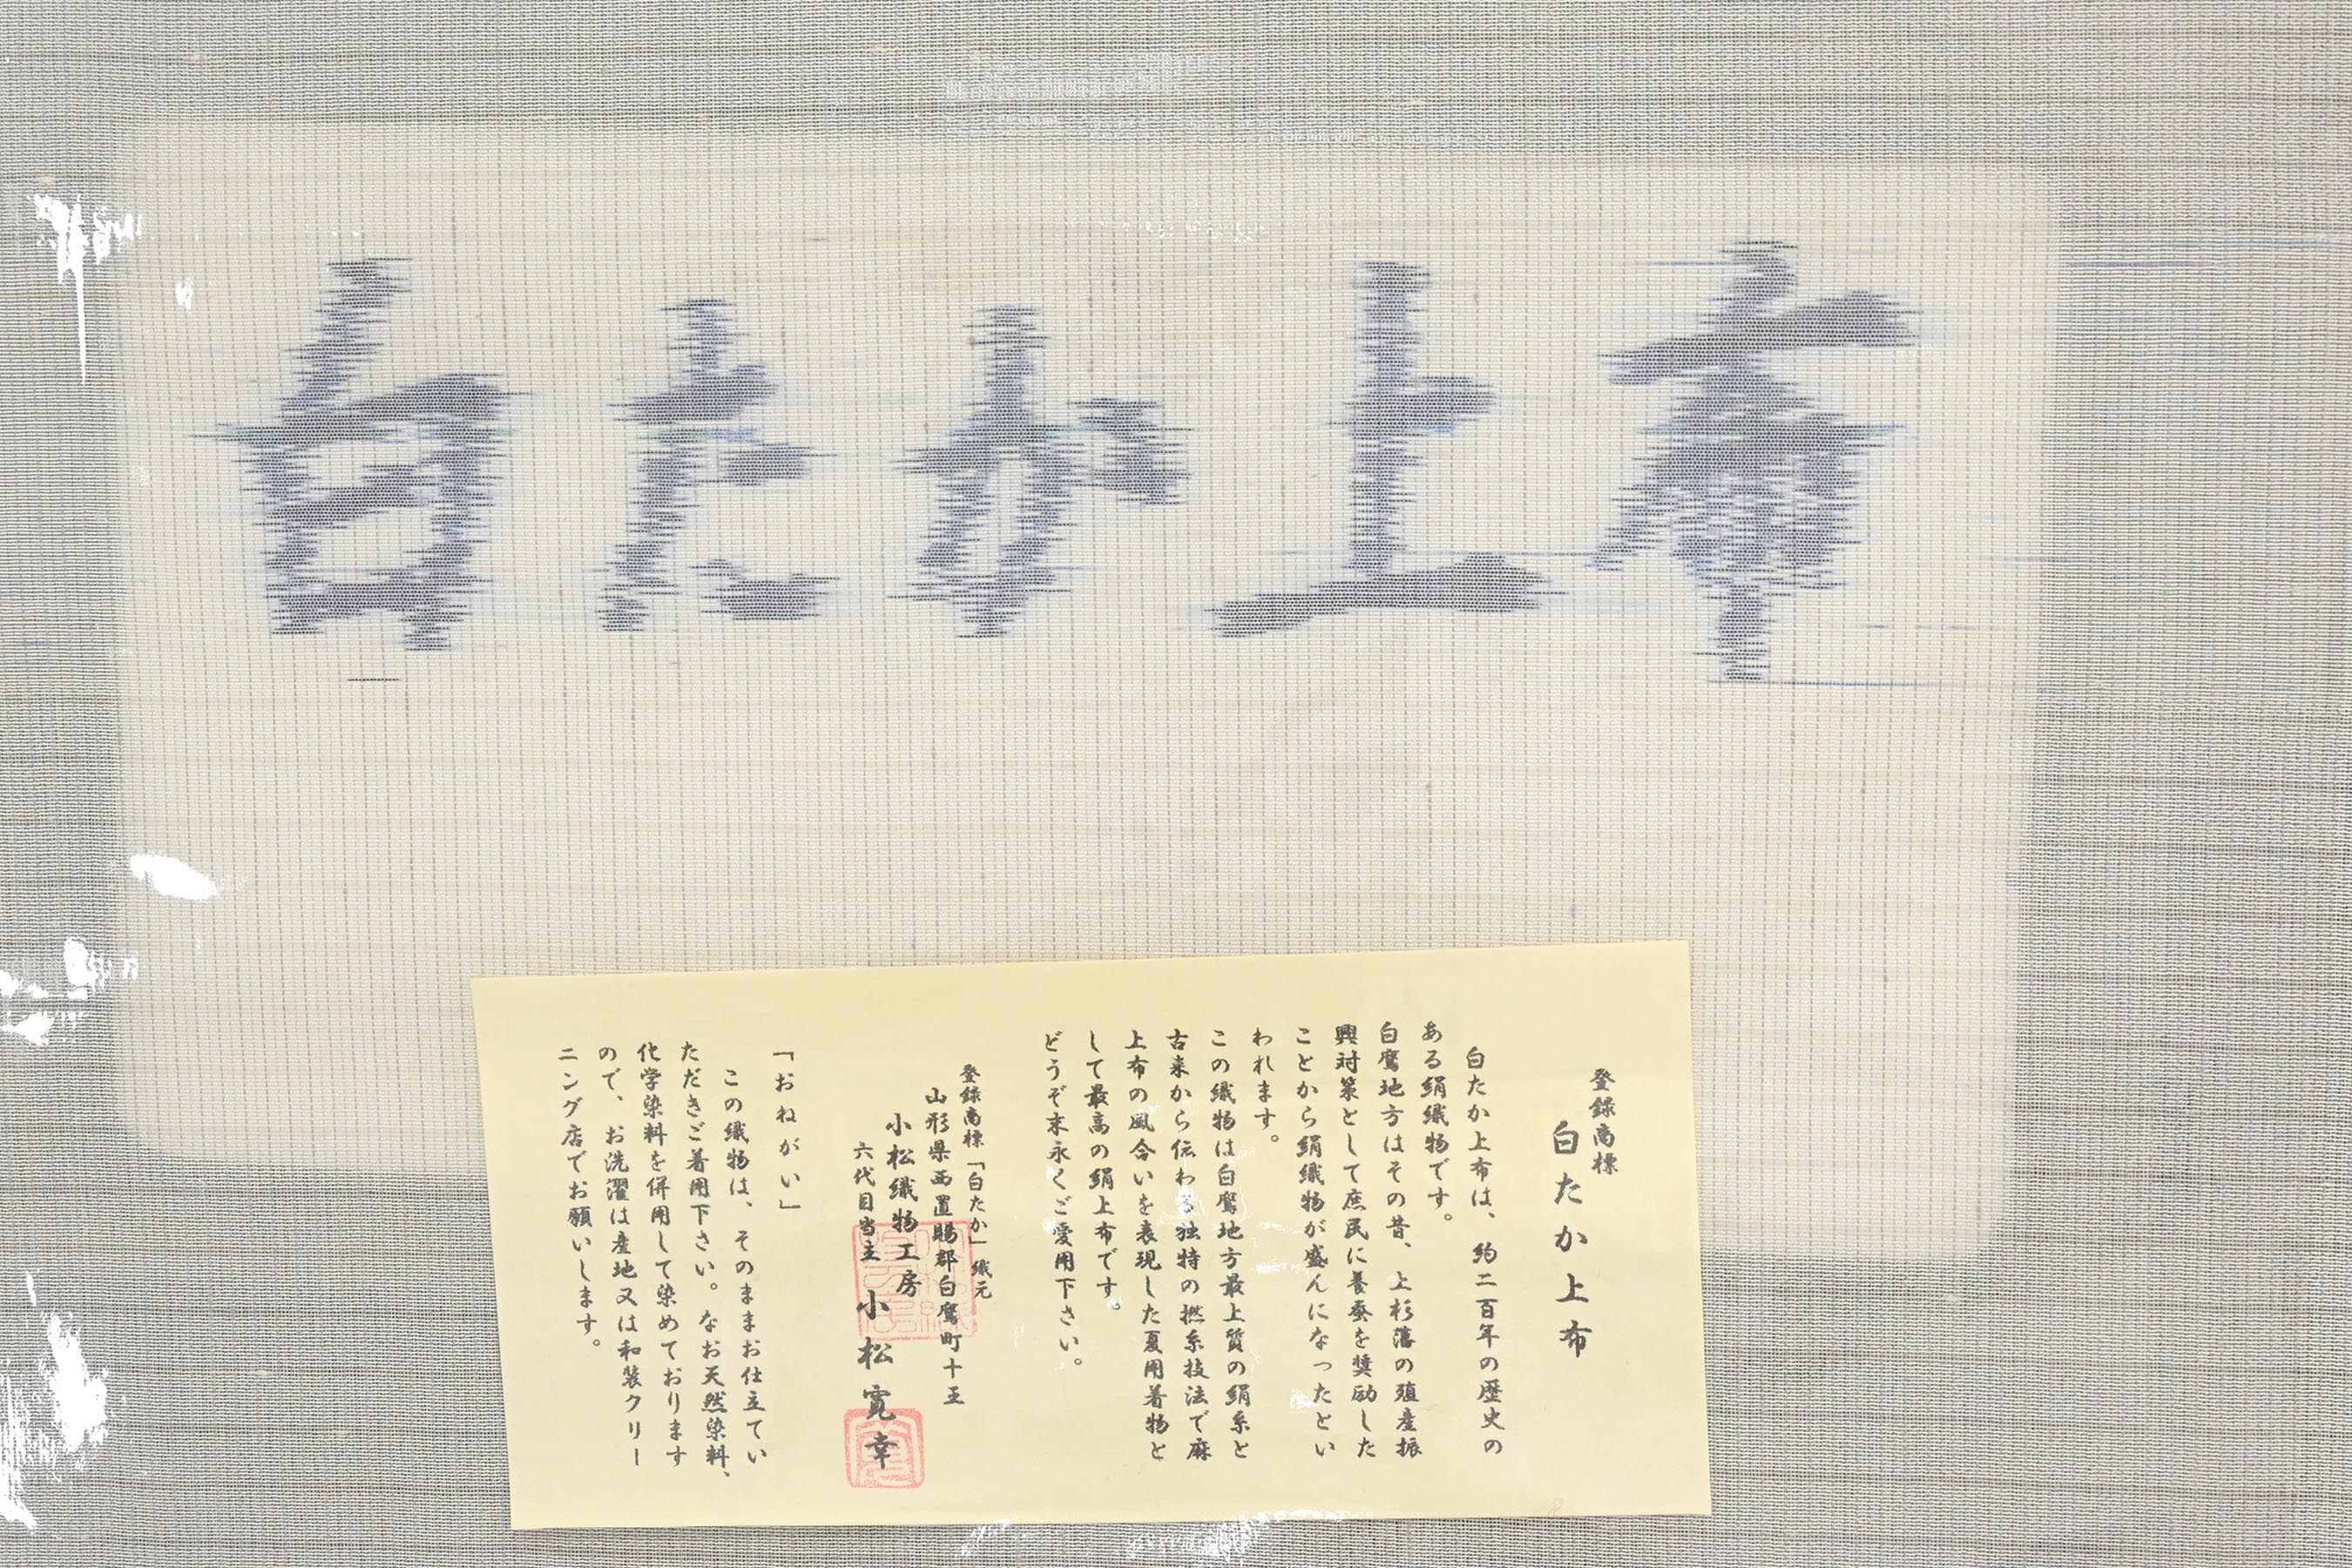 白たか上布
登録商標
白たか上布
白たか上布は、約二百年の歴史の
ある絹織物です。
白鷹地方はその昔、上杉藩の殖産振
興対策として庶民に養蚕を奨励した
ことから絹織物が盛んになったとい
われます。
この織物は白鷹地方最上質の絹糸と
古来から伝わる独特の撚糸技法で麻
上布の風合いを表現した夏用着物と
して最高の絹上布です。
どうぞ末永くご愛用下さい。
登録商標「白たか」織元
山形県西置賜郡白鷹町十王
小松織物工房
六代目当主 小松寛幸
「おねがい」
この織物は、そのままお仕立てい
ただきご着用下さい。なお天然染料、
化学染料を併用して染めております
ので、お洗濯は産地又は和装クリー
ニング店でお願いします。